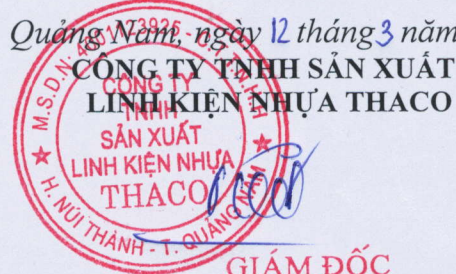 Quảng Nam, ngày 12 tháng 3 năm
CÔNG TY TNHH SẢN XUẤT
LINH KIỆN NHỰA THACO
CÔNG TY
TNHH
SẢN XUẤT
LINH KIỆN NHỰA
THACO
H. NÚI THÀNH - T. QUẢNG NAM
GIÁM ĐỐC